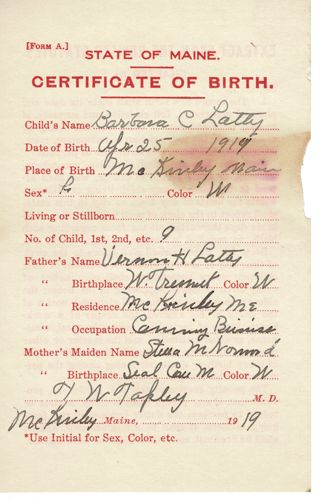 [FORM A.]
STATE OF MAINE.
CERTIFICATE OF BIRTH.
Child's Name Barbara C Latty
Date of Birth Apr 25 1919
Place of Birth McKinley Main
Sex* F Color W
Living or Stillborn
No. of Child, 1st, 2nd, etc. 9
Father's Name Vernon H Latty
" Birthplace W. Tremont Color W
" Residence McKinley ME
" Occupation Canning Business
Mother's Maiden Name Stella M
" Birthplace Seal Cove M Color W
T W Tapley M. D.
McKinley Maine, 1919
*Use Initial for Sex, Color, etc.